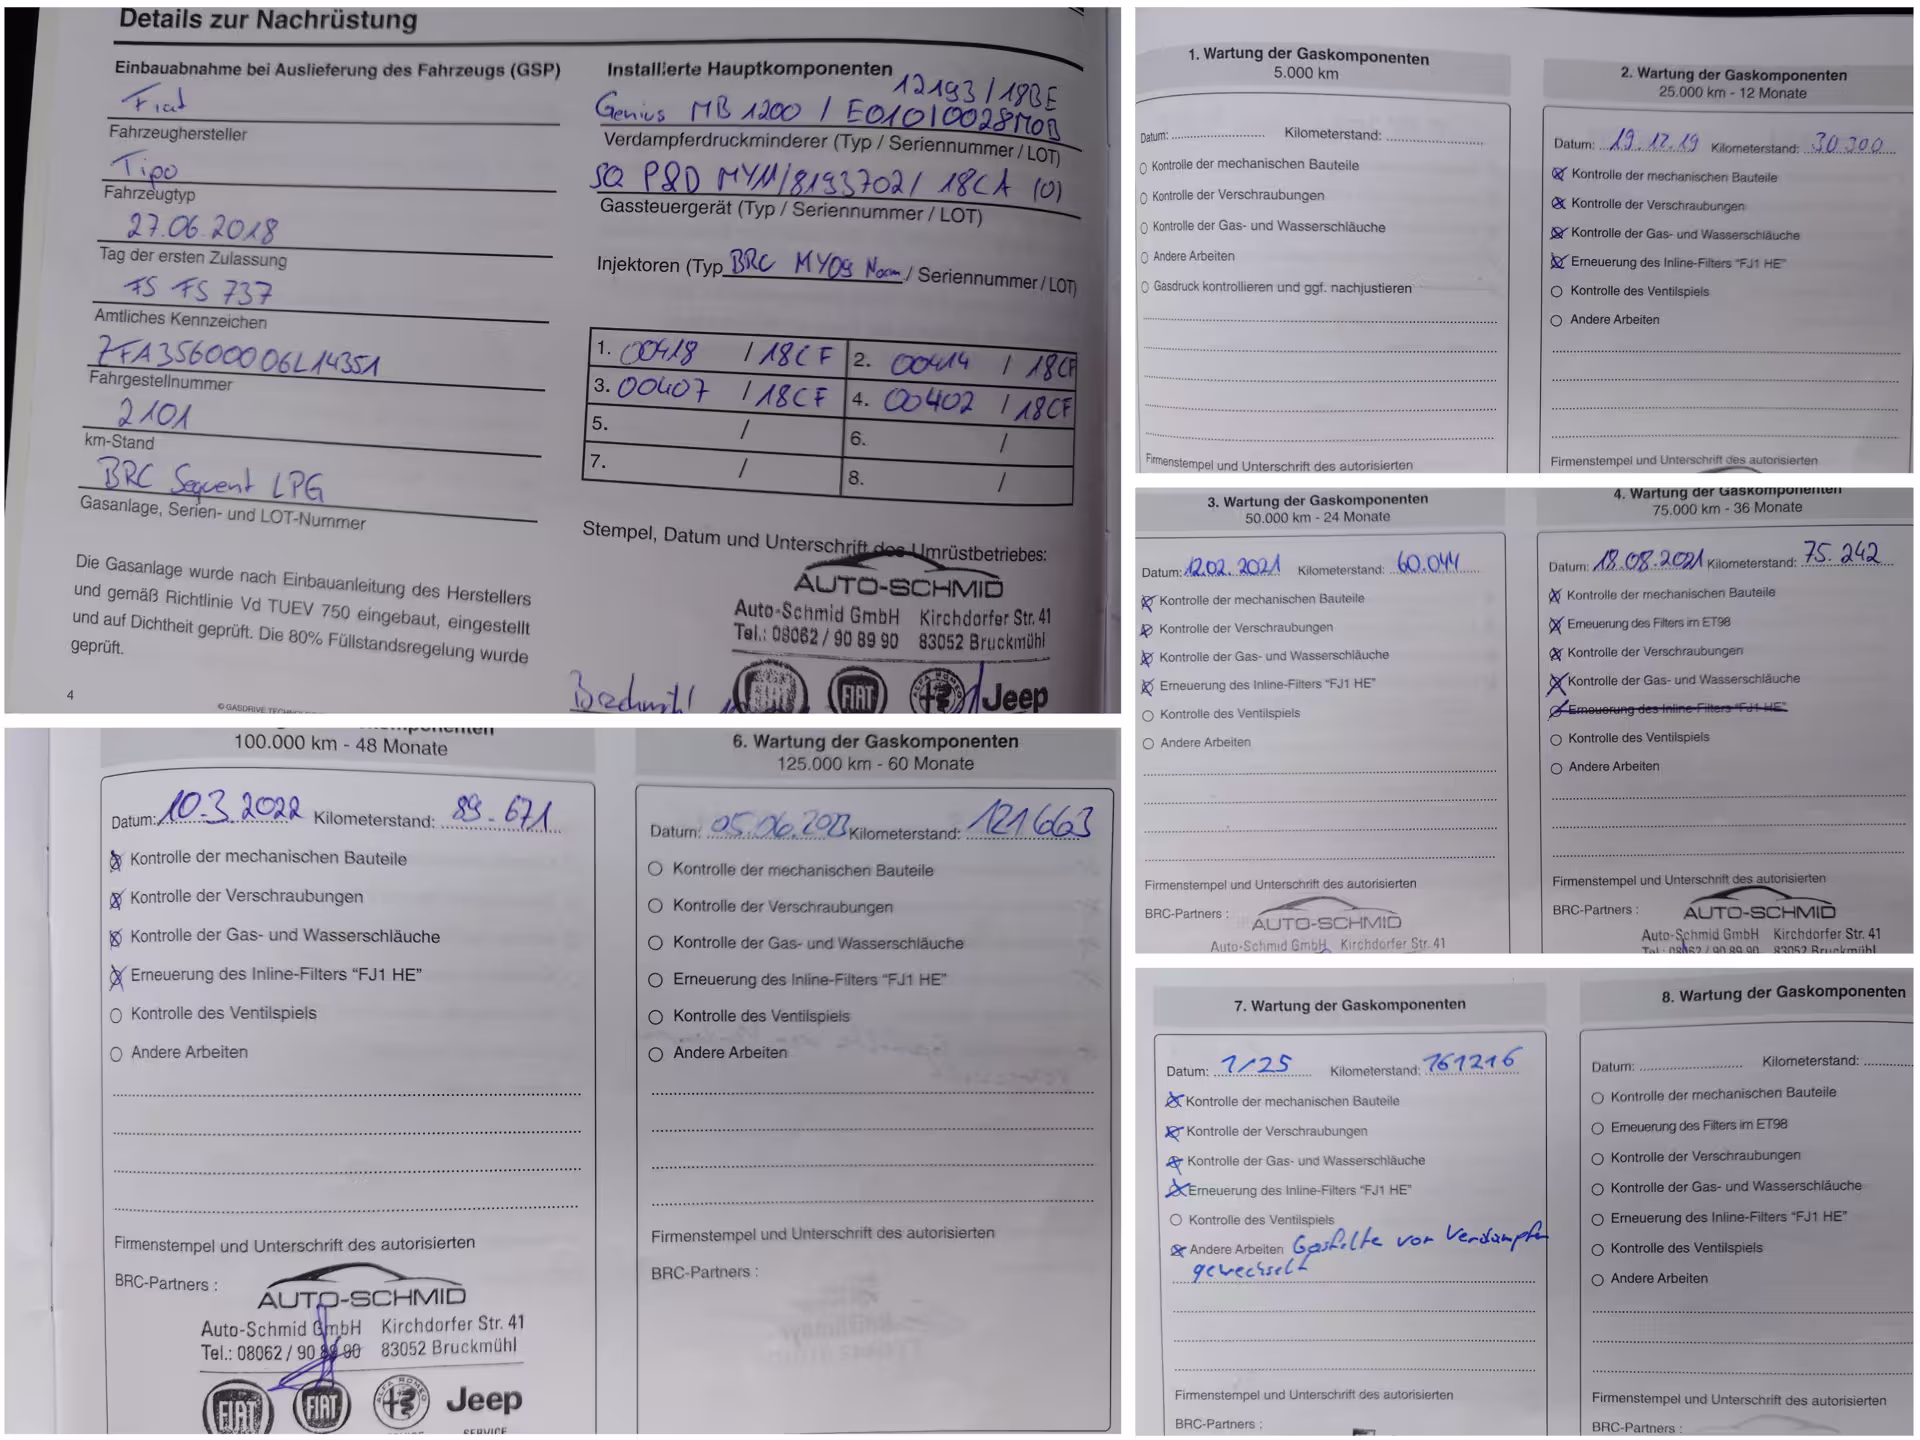 Details zur Nachrüstung
Einbauabnahme bei Auslieferung des Fahrzeugs (GSP)
Fiat
Fahrzeughersteller
Tipo
Fahrzeugtyp
27.06.2018
Tag der ersten Zulassung
FS FS 737
Amtliches Kennzeichen
ZFA35600006L14351
Fahrgestellnummer
2101
km-Stand
BRC Sequent LPG
Gasanlage, Serien- und LOT-Nummer
Die Gasanlage wurde nach Einbauanleitung des Herstellers
und gemäß Richtlinie Vd TUEV 750 eingebaut, eingestellt
und auf Dichtheit geprüft. Die 80% Füllstandsregelung wurde
geprüft.
4
Installierte Hauptkomponenten
12193 / 18BE
Genius MB 1200 / E01010028MOB
Verdampferdruckminderer (Typ / Seriennummer / LOT)
SQ P&D MY11/8193702/ 18CA (0)
Gassteuergerät (Typ / Seriennummer / LOT)
Injektoren (Typ BRC MY09 / Seriennummer / LOT)
1. 00418 / 18CF 2. 00414 / 18CF
3. 00407 / 18CF 4. 00402 / 18CF
5. / 6. /
7. / 8. /
Stempel, Datum und Unterschrift des Umrüstbetriebes:
AUTO-SCHMID
Auto-Schmid GmbH Kirchdorfer Str. 41
Tel.: 08062 / 90 89 90 83052 Bruckmühl
FIAT FIAT ALFA ROMEO Jeep
1. Wartung der Gaskomponenten
5.000 km
Datum: Kilometerstand:
Kontrolle der mechanischen Bauteile
Kontrolle der Verschraubungen
Kontrolle der Gas- und Wasserschläuche
Andere Arbeiten
Gasdruck kontrollieren und ggf. nachjustieren
Firmenstempel und Unterschrift des autorisierten
2. Wartung der Gaskomponenten
25.000 km - 12 Monate
Datum: 19.12.19 Kilometerstand: 30.300
Kontrolle der mechanischen Bauteile
Kontrolle der Verschraubungen
Kontrolle der Gas- und Wasserschläuche
Erneuerung des Inline-Filters "FJ1 HE"
Kontrolle des Ventilspiels
Andere Arbeiten
Firmenstempel und Unterschrift des autorisierten
3. Wartung der Gaskomponenten
50.000 km - 24 Monate
Datum: 12.02.2021 Kilometerstand: 60.044
Kontrolle der mechanischen Bauteile
Kontrolle der Verschraubungen
Kontrolle der Gas- und Wasserschläuche
Erneuerung des Inline-Filters "FJ1 HE"
Kontrolle des Ventilspiels
Andere Arbeiten
Firmenstempel und Unterschrift des autorisierten
BRC-Partners :
AUTO-SCHMID
Auto-Schmid GmbH Kirchdorfer Str. 41
4. Wartung der Gaskomponenten
75.000 km - 36 Monate
Datum: 18.08.2021 Kilometerstand: 75.242
Kontrolle der mechanischen Bauteile
Erneuerung des Filters im ET98
Kontrolle der Verschraubungen
Kontrolle der Gas- und Wasserschläuche
Erneuerung des Inline-Filters "FJ1 HE"
Kontrolle des Ventilspiels
Andere Arbeiten
Firmenstempel und Unterschrift des autorisierten
BRC-Partners :
AUTO-SCHMID
Auto-Schmid GmbH Kirchdorfer Str. 41
Tel.: 08062 / 90 89 90 83052 Bruckmühl
100.000 km - 48 Monate
Datum: 10.3.2022 Kilometerstand: 89.671
Kontrolle der mechanischen Bauteile
Kontrolle der Verschraubungen
Kontrolle der Gas- und Wasserschläuche
Erneuerung des Inline-Filters "FJ1 HE"
Kontrolle des Ventilspiels
Andere Arbeiten
Firmenstempel und Unterschrift des autorisierten
BRC-Partners :
AUTO-SCHMID
Auto-Schmid GmbH Kirchdorfer Str. 41
Tel.: 08062 / 90 89 90 83052 Bruckmühl
FIAT FIAT ALFA ROMEO Jeep
SERVICE
6. Wartung der Gaskomponenten
125.000 km - 60 Monate
Datum: 05.06.2023 Kilometerstand: 121663
Kontrolle der mechanischen Bauteile
Kontrolle der Verschraubungen
Kontrolle der Gas- und Wasserschläuche
Erneuerung des Inline-Filters "FJ1 HE"
Kontrolle des Ventilspiels
Andere Arbeiten
Firmenstempel und Unterschrift des autorisierten
BRC-Partners :
7. Wartung der Gaskomponenten
Datum: 1/25 Kilometerstand: 161216
Kontrolle der mechanischen Bauteile
Kontrolle der Verschraubungen
Kontrolle der Gas- und Wasserschläuche
Erneuerung des Inline-Filters "FJ1 HE"
Kontrolle des Ventilspiels
Andere Arbeiten Gasfilte vor Verdampfer
gewechselt
Firmenstempel und Unterschrift des autorisierten
BRC-Partners :
8. Wartung der Gaskomponenten
Datum: Kilometerstand:
Kontrolle der mechanischen Bauteile
Erneuerung des Filters im ET98
Kontrolle der Verschraubungen
Kontrolle der Gas- und Wasserschläuche
Erneuerung des Inline-Filters "FJ1 HE"
Kontrolle des Ventilspiels
Andere Arbeiten
Firmenstempel und Unterschrift des autorisierten
BRC-Partners :